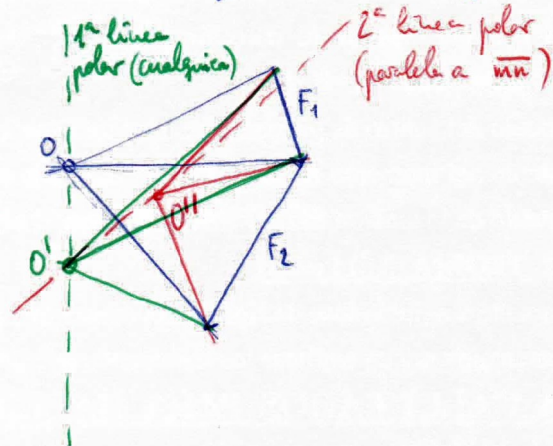 1ª línea
polar (cualquiera)
2ª línea polar
(paralela a mn)
F1
O
O''
O'
F2